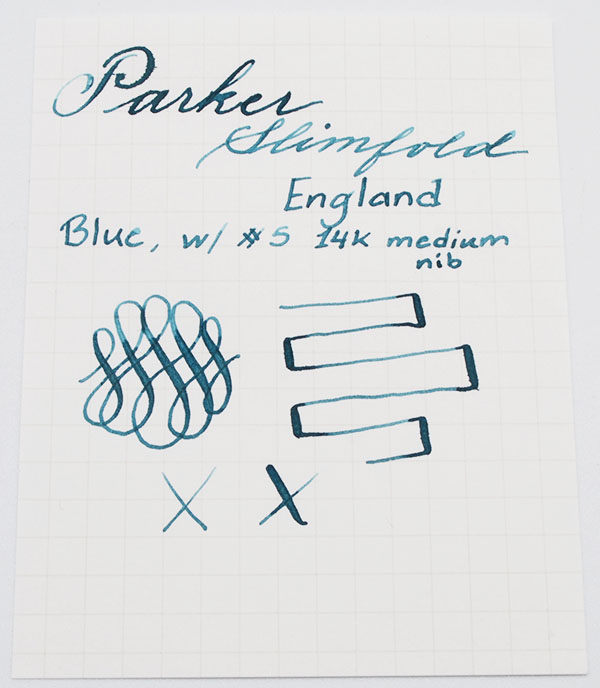 Parker
Slimfold
England
Blue, w/ #5 14k medium
nib
X X